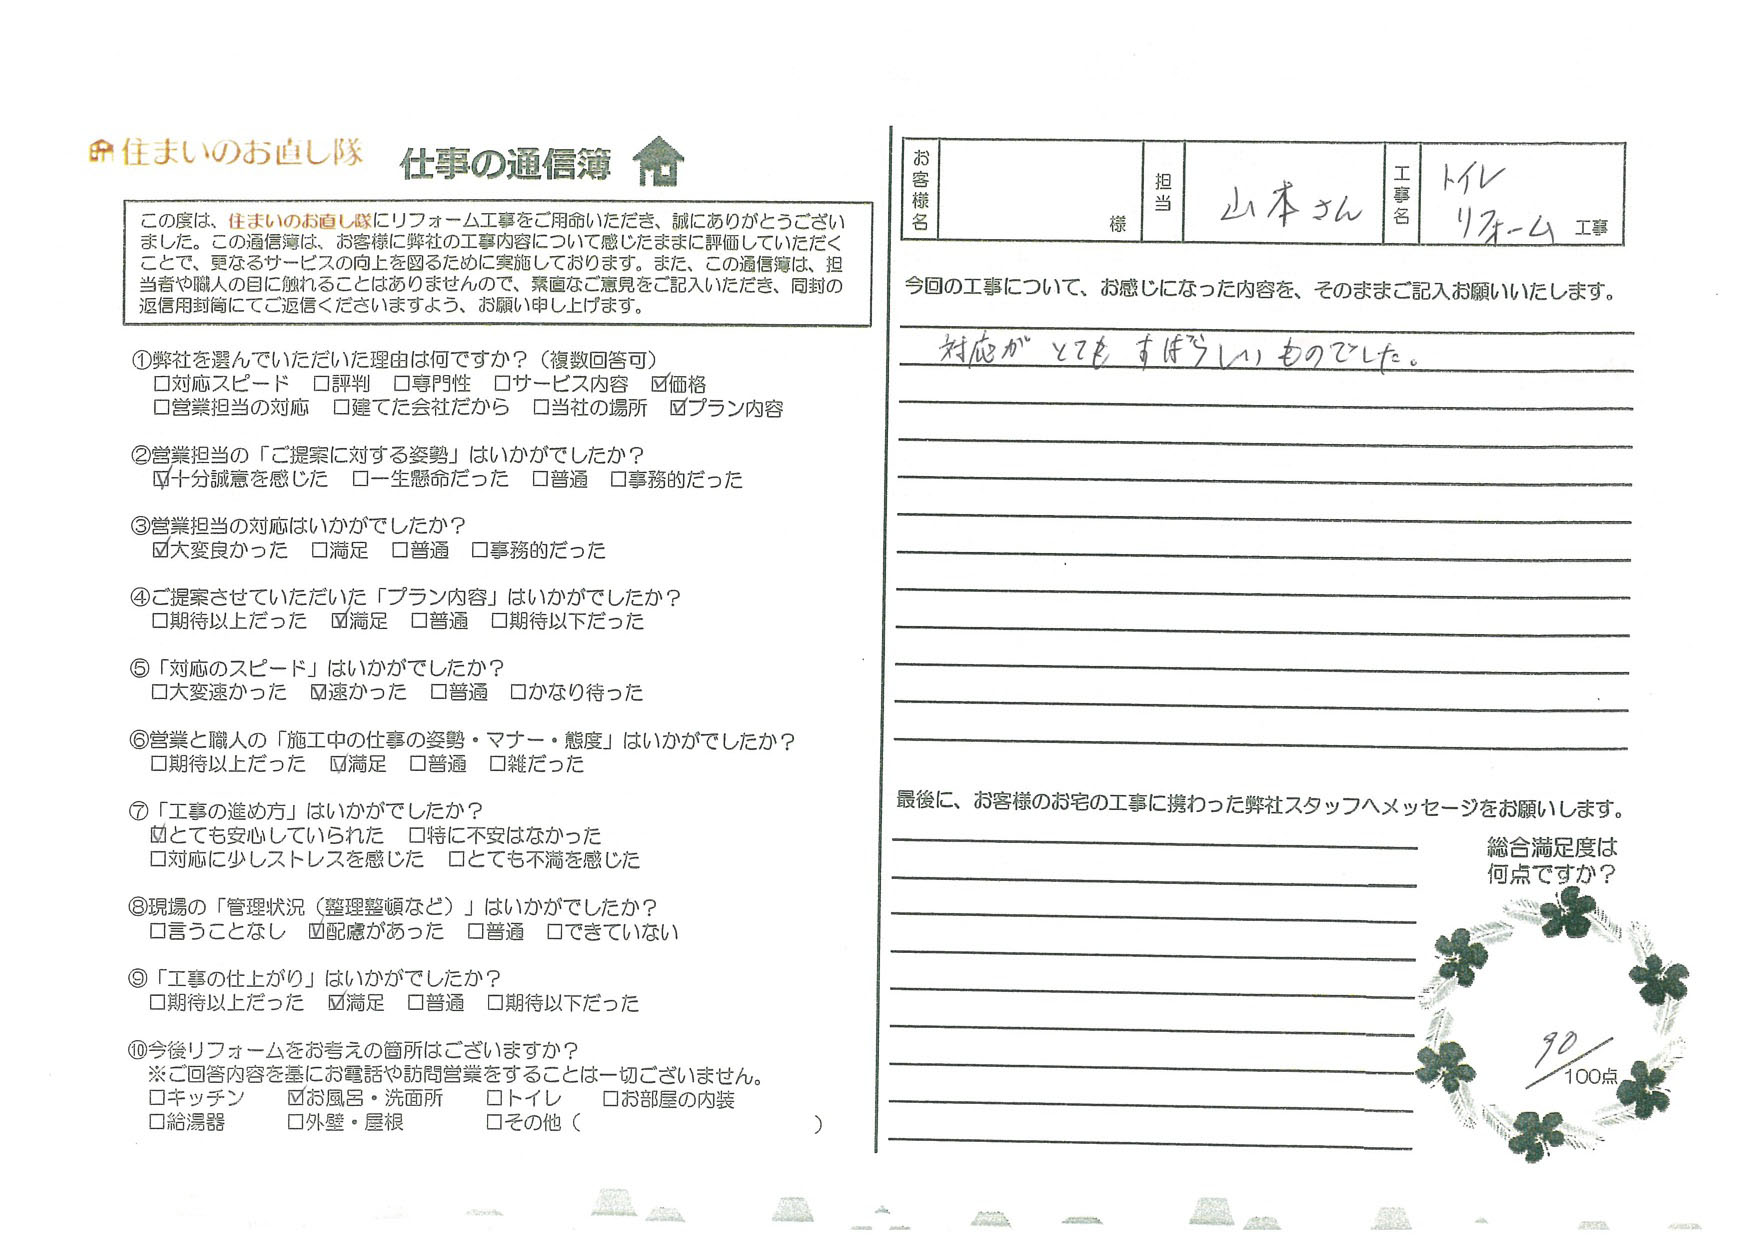 住まいのお直し隊
仕事の通信簿
この度は、住まいのお直し隊にリフォーム工事をご用命いただき、誠にありがとうござい
ました。この通信簿は、お客様に弊社の工事内容について感じたままに評価していただく
ことで、更なるサービスの向上を図るために実施しております。また、この通信簿は、担
当者や職人の目に触れることはありませんので、素直なご意見をご記入いただき、同封の
返信用封筒にてご返信くださいますよう、お願い申し上げます。
①弊社を選んでいただいた理由は何ですか？（複数回答可）
□対応スピード □評判 □専門性 □サービス内容 ☑価格
□営業担当の対応 □建てた会社だから □当社の場所 ☑プラン内容
②営業担当の「ご提案に対する姿勢」はいかがでしたか？
☑十分誠意を感じた □一生懸命だった □普通 □事務的だった
③営業担当の対応はいかがでしたか？
☑大変良かった □満足 □普通 □事務的だった
④ご提案させていただいた「プラン内容」はいかがでしたか？
□期待以上だった ☑満足 □普通 □期待以下だった
⑤「対応のスピード」はいかがでしたか？
□大変速かった ☑速かった □普通 □かなり待った
⑥営業と職人の「施工中の仕事の姿勢・マナー・態度」はいかがでしたか？
□期待以上だった ☑満足 □普通 □雑だった
⑦「工事の進め方」はいかがでしたか？
☑とても安心していられた □特に不安はなかった
□対応に少しストレスを感じた □とても不満を感じた
⑧現場の「管理状況（整理整頓など）」はいかがでしたか？
□言うことなし ☑配慮があった □普通 □できていない
⑨「工事の仕上がり」はいかがでしたか？
□期待以上だった ☑満足 □普通 □期待以下だった
⑩今後リフォームをお考えの箇所はございますか？
※ご回答内容を基にお電話や訪問営業をすることは一切ございません。
□キッチン ☑お風呂・洗面所 □トイレ □お部屋の内装
□給湯器 □外壁・屋根 □その他（ ）
お客様名 様 担当 山本さん 工事名 トイレ
リフォーム 工事
今回の工事について、お感じになった内容を、そのままご記入お願いいたします。
対応が とても すばらしい ものでした。
最後に、お客様のお宅の工事に携わった弊社スタッフへメッセージをお願いします。
総合満足度は
何点ですか？
90
/100点